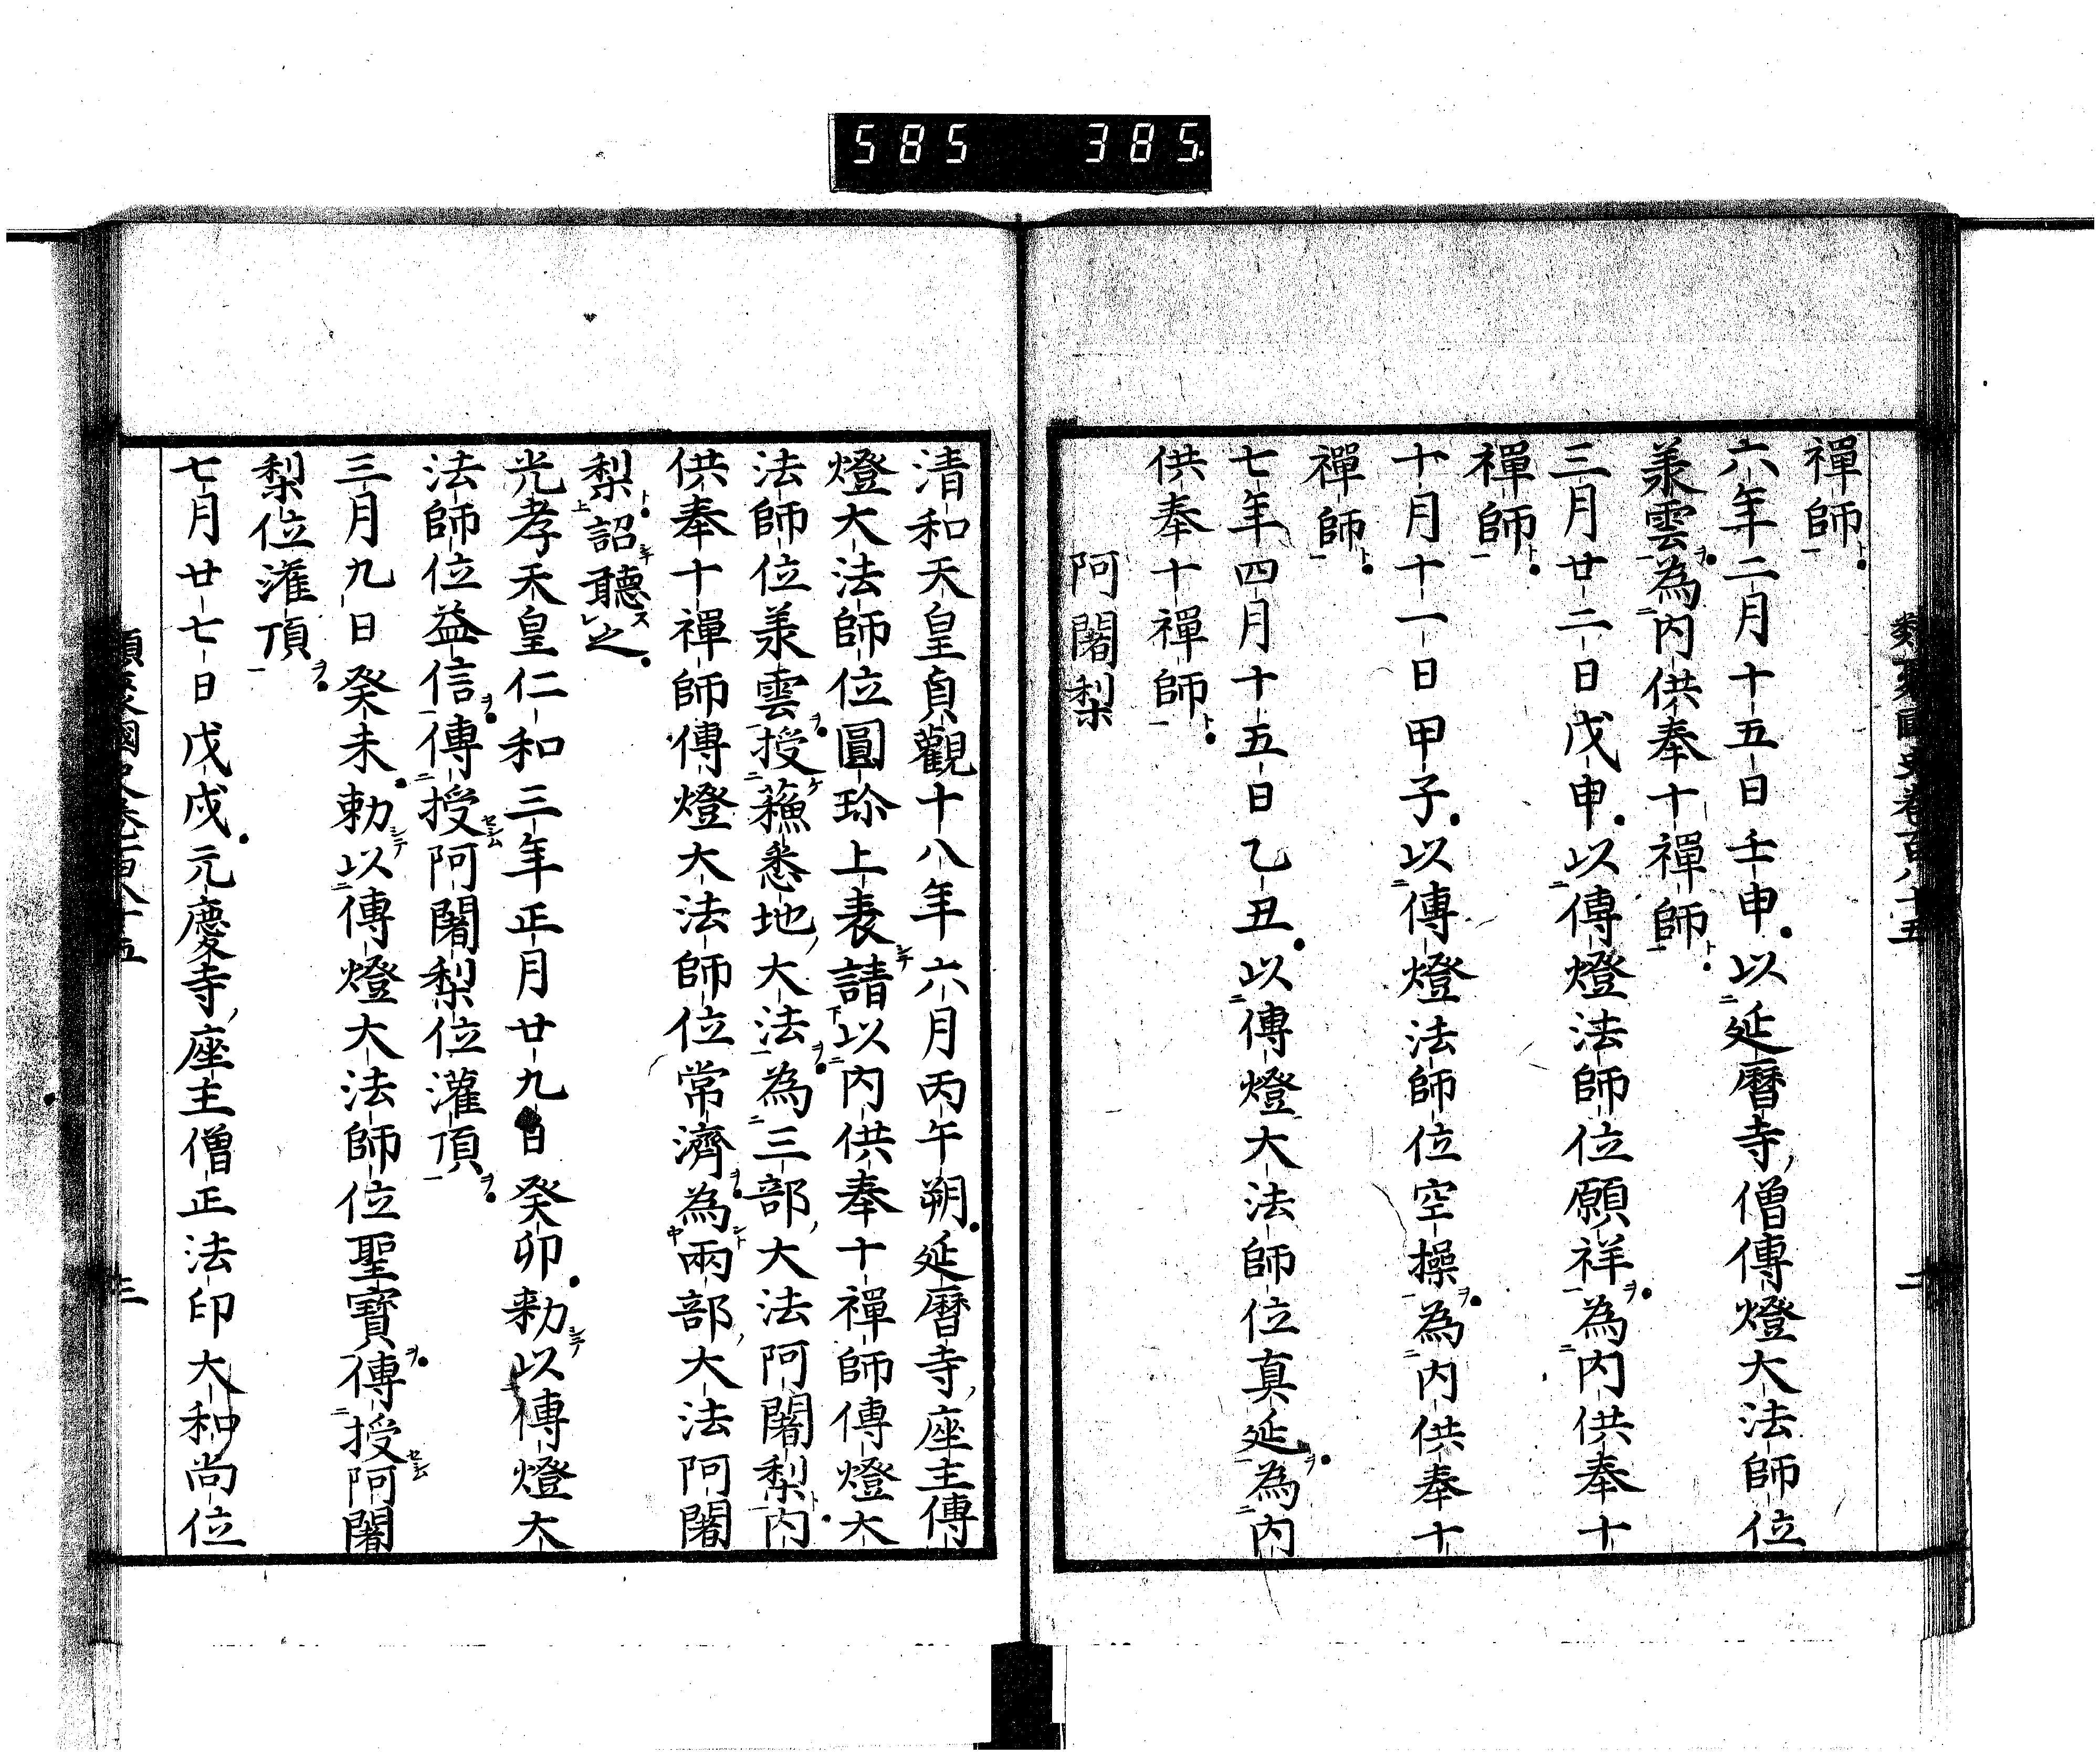 585 385
類聚國史卷百八十五 二
禪師
六年二月十五日壬申以延曆寺僧傳燈大法師位
羕雲為内供奉十禪師
三月廿二日戊申以傳燈法師位願祥為内供奉十
禪師
十月十一日甲子以傳燈法師位空操為内供奉十
禪師
七年四月十五日乙丑以傳燈大法師位真延為内
供奉十禪師
阿闍梨
清和天皇貞觀十八年六月丙午朔延曆寺座主傳
燈大法師位圓珎上表請以内供奉十禪師傳燈大
法師位羕雲授蘓悉地大法為三部大法阿闍梨内
供奉十禪師傳燈大法師位常濟為兩部大法阿闍
梨詔聽之
光孝天皇仁和三年正月廿九日癸卯勅以傳燈大
法師位益信傳授阿闍梨位灌頂
三月九日癸未勅以傳燈大法師位聖寶傳授阿闍
梨位灌頂
七月廿七日戊戌元慶寺座主僧正法印大和尚位
類聚國史卷百八十五 三